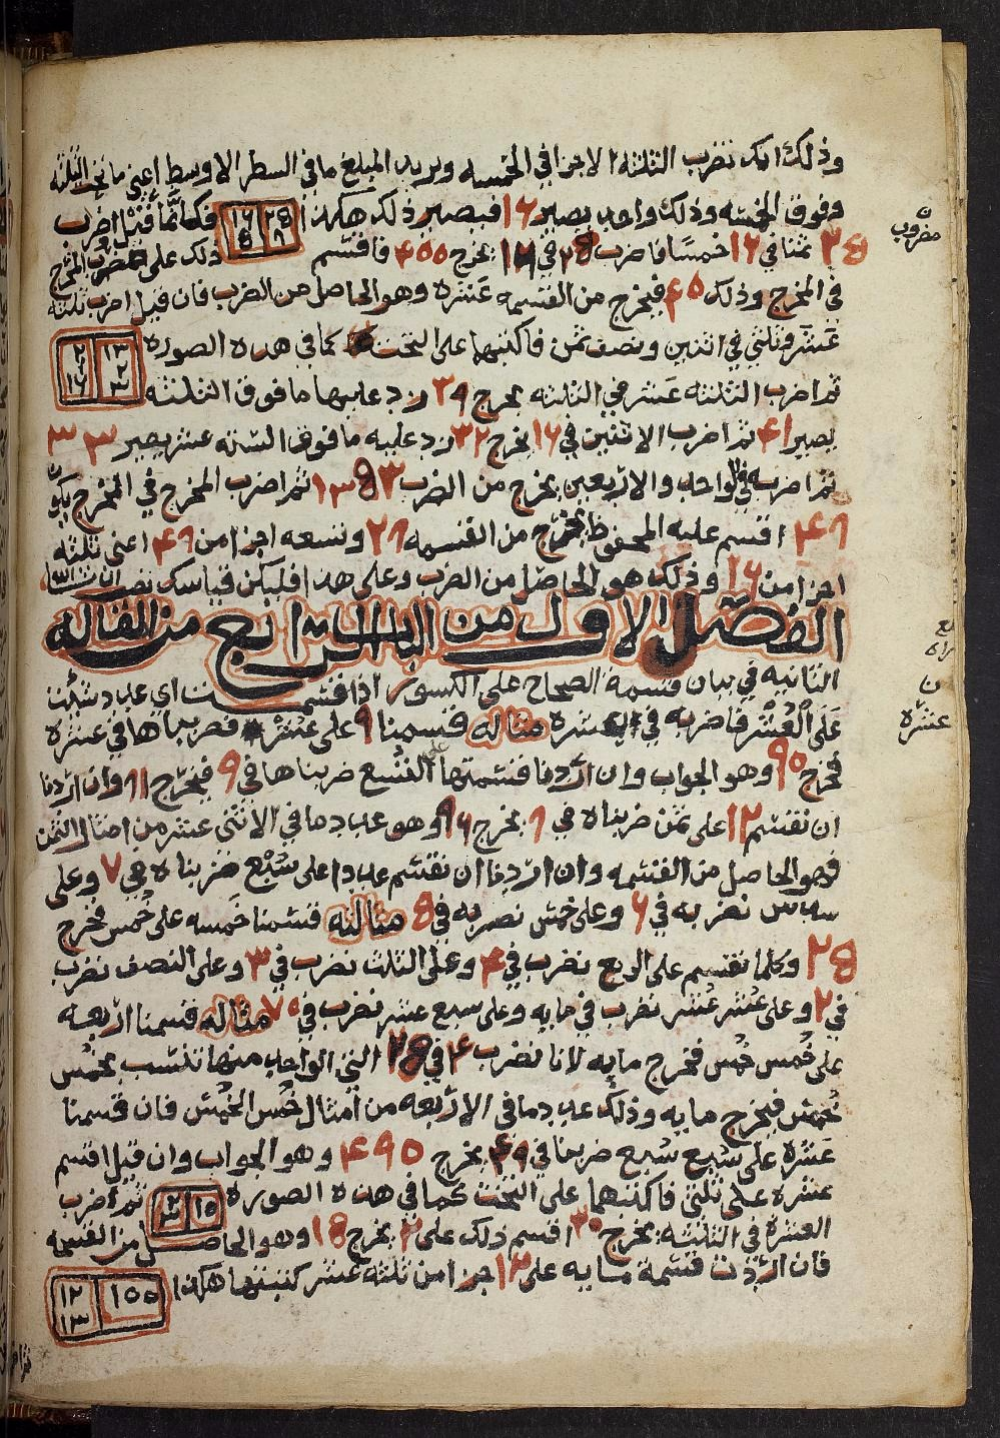 وذلك انك تضرب الثلثه الاجزا في الخمسه وتريد المبلغ ما في السطر الاوسط اعني ما تحت الثلثه
وفوق الخمسه وذلك واحد يصير ١٦ فيصير ذلك هكذا فكانما قيل اضرب
ثمنا في ١٦ خمسا فاضرب في ١٦ يخرج فاقسم ذلك على مضروب المخرج
في المخرج وذلك فيخرج من القسمه عشره وهو الحاصل من الضرب فان قيل اضرب ثلثه
عشر وثلثي في اثنين ونصف ثمن فاكتبها على التخت كما في هذه الصوره
١٣ ٢ ٣
٢ ١ ١٦
ثم اضرب الثلثه عشر في الثلثه يخرج ٣٩ زد عليها ما فوق الثلثه
يصير ٤١ ثم اضرب الاثنين في ١٦ يخرج ٣٢ زد عليه ما فوق السته عشر يصير ٣٣
ثم اضربه في الواحد والاربعين يخرج من الضرب ثم اضرب المخرج في المخرج يكون
اقسم عليه المحفوظ يخرج من القسمه وتسعه اجزا من اعني ثلثه
اجزا من ١٦ وذلك هو الحاصل من الضرب وعلى هذا فليكن قياسك
الفصل الاول من الباب الرابع من المقاله
الثانيه في بيان قسمة الصحاح على الكسور اذا قسمت اي عدد شئت
على العشر فاضربه في عشره مثاله قسمنا ٩ على عشر فضربناها في عشره
فخرج ٩٥ وهو الجواب وان اردنا قسمتها على التسع ضربناها في ٩ فيخرج ٨١ وان اردنا
ان نقسم ١٢ على ثمن ضربناه في ٨ يخرج ٩٦ وهو عدد ما في الاثني عشر من امثال الثمن
فهو الحاصل من القسمه وان اردنا ان نقسم عددا على سبع ضربناه في ٧ وعلى
سدس نضربه في ٦ وعلى خمس نضربه في مثاله قسمنا خمسه على خمس فخرج
وكلما نقسم على الربع نضرب في ٤ وعلى الثلث نضرب في ٣ وعلى النصف نضرب
في ٢ وعلى عشر عشر نضرب في مايه وعلى سبع عشر نضرب في ٧٥ مثاله قسمنا اربعه
على خمس خمس فخرج مايه لانا نضرب ٤ في التي الواحد منها تنسب بخمس
خمس فيخرج مايه وذلك عدد ما في الاربعه من امثال خمس الخمس فان قسمنا
عشره على سبع سبع ضربنا في ٤٩ يخرج ٤٩٥ وهو الجواب وان قيل اقسم
عشره على ثلثي فاكتبهما على التخت كما في هذه الصوره ثم اضرب
١٥ ٢ ٣
العشره في الثلثه يخرج ٣٥ اقسم ذلك على ٢ يخرج وهو الحاصل من القسمه
فان اردت قسمة مايه على ١٢ جزا من ثلثه عشر كتبتها هكذا
١٥٥ ١٢ ١٣
مضروب
عشره